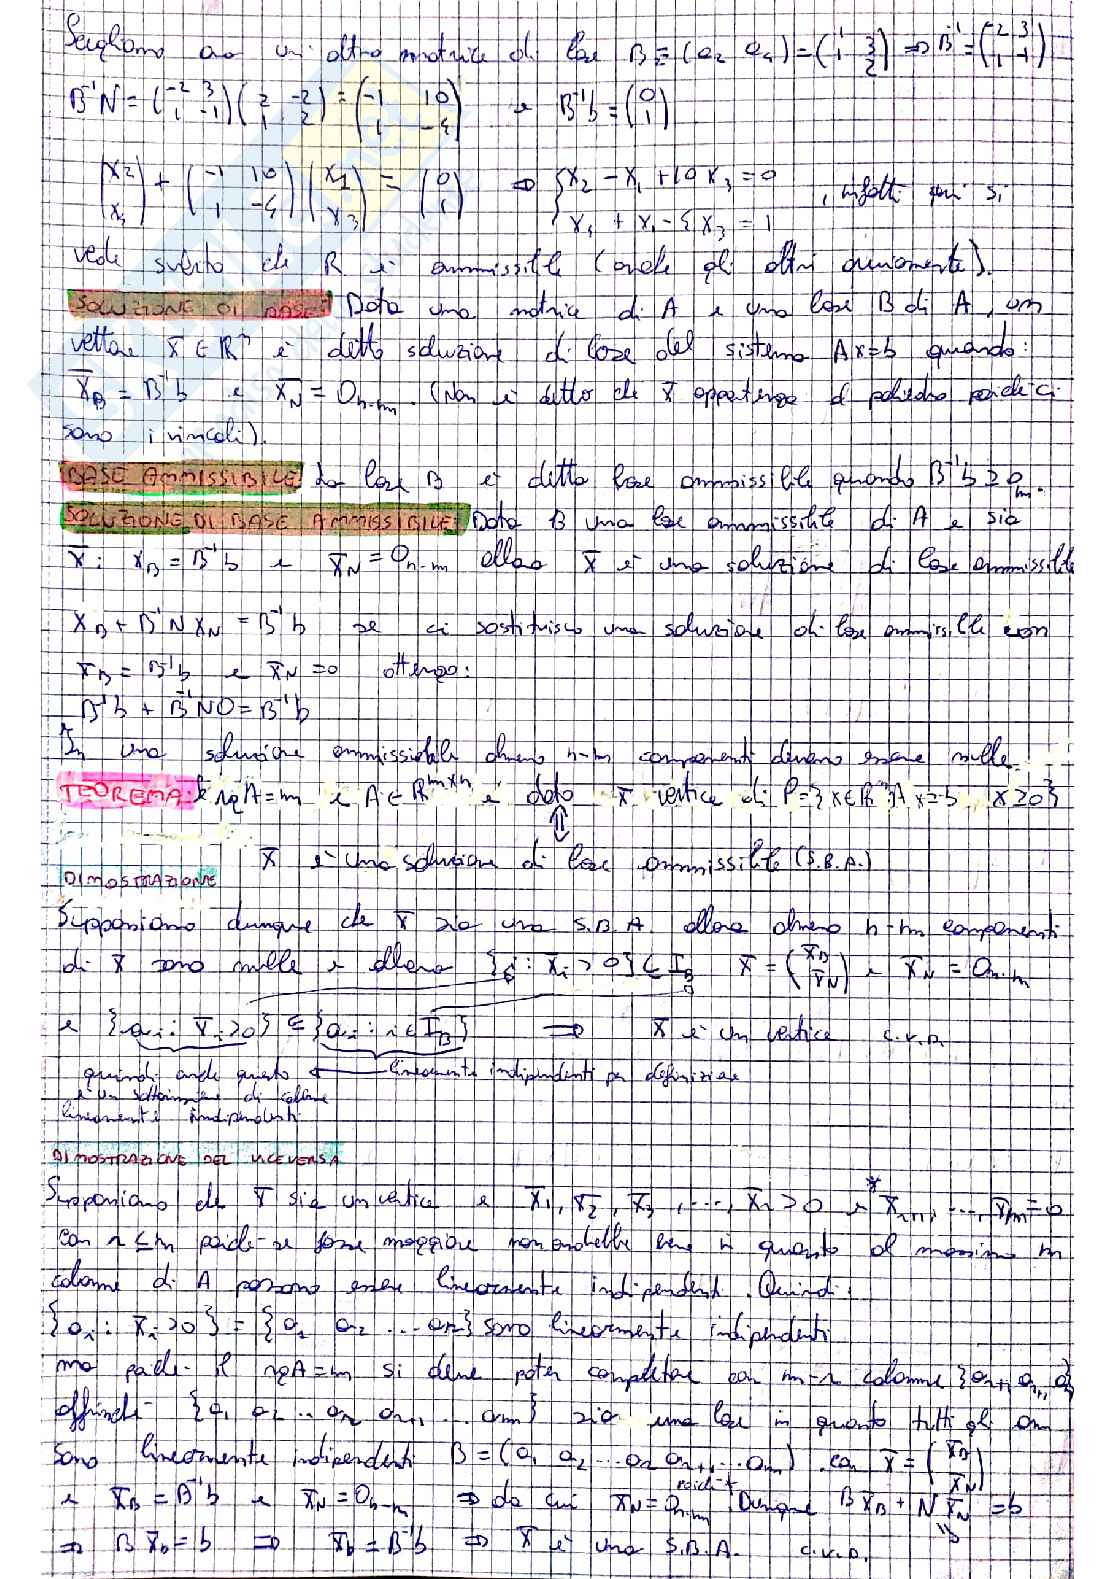 Scegliamo ora un'altra matrice di base B₂ = (a₂ a₄) = (1 3; 1 2) ⇒ B⁻¹ = (-2 3; 1 -1)
B⁻¹N = (-2 3; 1 -1)(2 -2; 1 2) = (-1 10; 1 -4) e B⁻¹b = (0; 1)
(x₂; x₄) + (-1 10; 1 -4)(x₁; x₃) = (0; 1) ⇒ { x₂ - x₁ + 10x₃ = 0
x₄ + x₁ - 4x₃ = 1 , infatti qui si
vede subito che è ammissibile (anche gli altri ovviamente).
SOLUZIONE DI BASE: Data una matrice di A e una base B di A, un
vettore x̄ ∈ ℝⁿ è detto soluzione di base del sistema Ax=b quando:
x̄_B = B⁻¹b e x̄_N = 0_{n-m}. (Non è detto che x̄ appartenga al poliedro poiché ci
sono i vincoli).
BASE AMMISSIBILE La base B è detta base ammissibile quando B⁻¹b ≥ 0_m.
SOLUZIONE DI BASE AMMISSIBILE: Data B una base ammissibile di A e sia
x̄: x_B = B⁻¹b e x̄_N = 0_{n-m} allora x̄ è una soluzione di base ammissibile
x_B + B⁻¹N x_N = B⁻¹b se ci sostituisco una soluzione di base ammissibile con
x̄_B = B⁻¹b e x̄_N = 0 ottengo:
B⁻¹b + B⁻¹N0 = B⁻¹b
In una soluzione ammissibile almeno n-m componenti devono essere nulle.
TEOREMA: rgA=m e A∈ℝ^{m×n} e dato x̄ vertice di P={x∈ℝⁿ: Ax=b x≥0}
⇕
x̄ è una soluzione di base ammissibile (S.B.A.)
DIMOSTRAZIONE
Supponiamo dunque che x̄ sia una S.B.A. allora almeno n-m componenti
di x̄ sono nulle e allora {i: x̄ᵢ>0} ⊆ I_B x̄ = (x̄_B; x̄_N) e x̄_N = 0_{n-m}
e {aᵢ: x̄ᵢ>0} ⊆ {aᵢ: i∈I_B} ⇒ x̄ è un vertice c.v.d.
quindi anche questo ← linearmente indipendenti per definizione
è un sottoinsieme di colonne
linearmente indipendenti
DIMOSTRAZIONE DEL VICEVERSA
Supponiamo che x̄ sia un vertice e x̄₁, x̄₂, x̄₃, ..., x̄ᵣ > 0 e * x̄ᵣ₊₁, ..., x̄ₘ = 0
con r ≤ m poiché se fosse maggiore non andrebbe bene in quanto al massimo m
colonne di A possono essere linearmente indipendenti. Quindi:
{aᵢ: x̄ᵢ>0} = {a₁ a₂ ... aᵣ} sono linearmente indipendenti
ma poiché il rgA=m si deve poter completare con m-r colonne {aᵣ₊₁ aᵣ₊₁ a}
affinché {a₁ a₂ .. aᵣ aᵣ₊₁ ... aₘ} sia una base in quanto tutti gli am
sono linearmente indipendenti B = (a₁ a₂ ... aᵣ aᵣ₊₁ ... aₘ) con x̄ = (x̄_B; x̄_N)
e x̄_B = B⁻¹b e x̄_N = 0_{n-m} ⇒ da cui x̄_N = 0_{n-m} poiché * Dunque Bx̄_B + Nx̄_N = b
⇒ Bx̄_b = b ⇒ x̄_b = B⁻¹b ⇒ x̄ è una S.B.A. c.v.d.